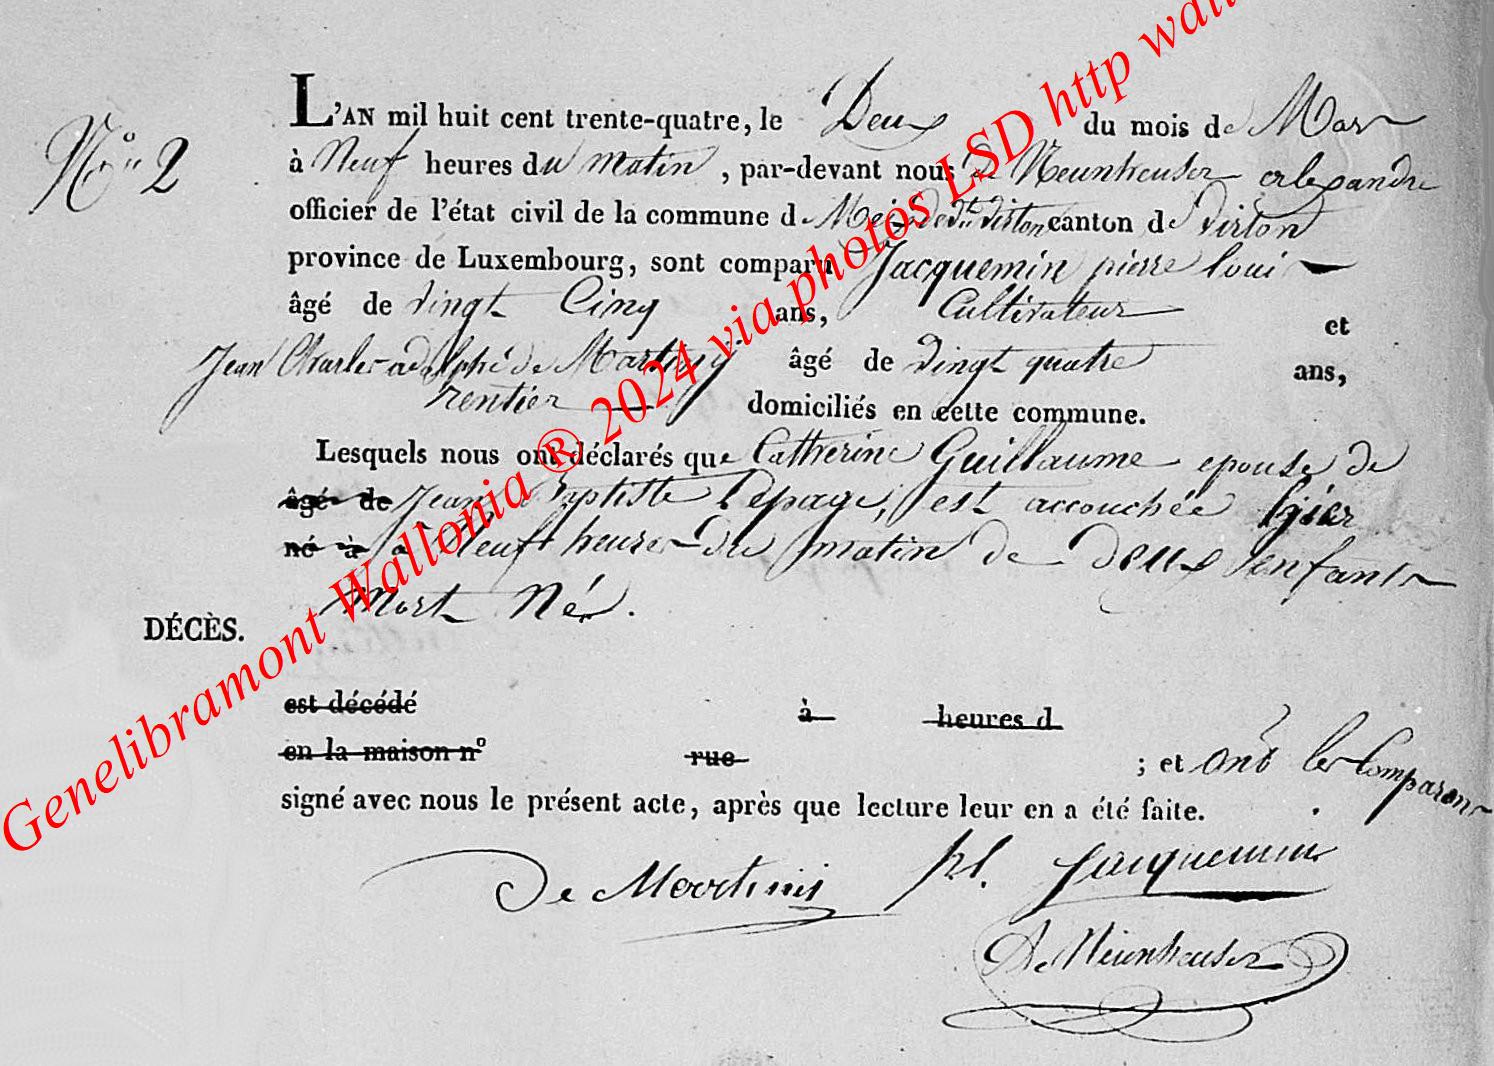 N° 2
L'AN mil huit cent trente-quatre, le Deux du mois de Mars
à Neuf heures du matin, par-devant nous De Neunheuser alexandre
officier de l'état civil de la commune de Meix devt Virton canton de Virton
province de Luxembourg, sont comparu Jacquemin pierre loui
âgé de vingt Cinq ans, Cultivateur et
Jean Charles adolphe de Martiny âgé de vingt quatre ans,
rentier domiciliés en cette commune.
Lesquels nous ont déclarés que Catherine Guillaume epouse de
âgé de Jean Baptiste Lepage, est accouchée hier
né à a Neuf heures du matin de deux enfants
Mort Né.
DÉCÈS.
est décédé à heures d
en la maison n° rue ; et ont les Comparans
signé avec nous le présent acte, après que lecture leur en a été faite.
De Martinij pl. Jacquemin
De Neunheuser
Genelibramont Wallonia ® 2024 via photos LSD http wall